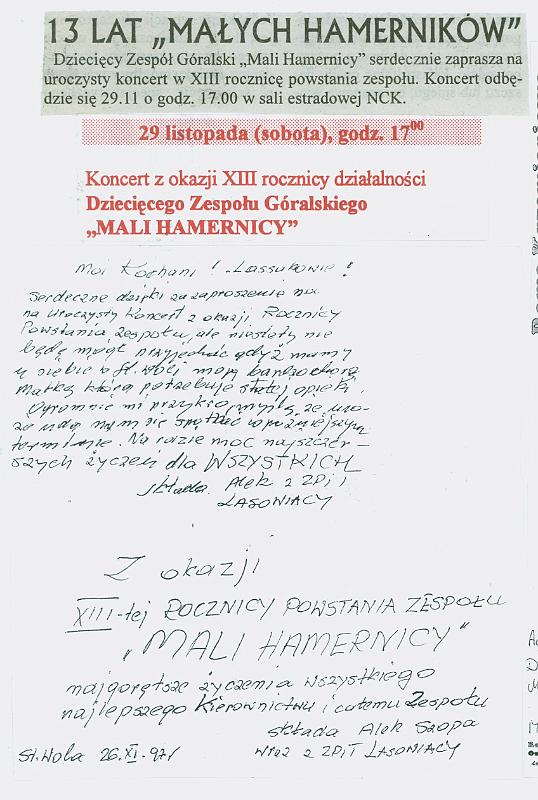 13 LAT „MAŁYCH HAMERNIKÓW”
Dziecięcy Zespół Góralski „Mali Hamernicy” serdecznie zaprasza na
uroczysty koncert w XIII rocznicę powstania zespołu. Koncert odbę-
dzie się 29.11 o godz. 17.00 w sali estradowej NCK.
29 listopada (sobota), godz. 17⁰⁰
Koncert z okazji XIII rocznicy działalności
Dziecięcego Zespołu Góralskiego
„MALI HAMERNICY”
Moi Kochani! Lassukowie!
Serdeczne dzięki za zaproszenie na
na Uroczysty Koncert z okazji Rocznicy
Powstania zespołu, ale niestety nie
będę mógł przyjechać gdyż mamy
u siebie w St. Woli moją bardzo chorą
Matkę która potrzebuje stałej opieki.
Ogromnie mi przykro, myślę, że
że uda nam się spotkać w późniejszym
terminie. Na razie moc najszczer-
szych życzeń dla WSZYSTKICH
składa Alek z ZPiT
LASONIACY
Z okazji
XIII-tej ROCZNICY POWSTANIA ZESPOŁU
„MALI HAMERNICY”
najgorętsze życzenia wszystkiego
najlepszego Kierownictwu i całemu Zespołu
składa Alek Szopa
St. Wola 26.XI.97r wraz z ZPiT LASONIACY